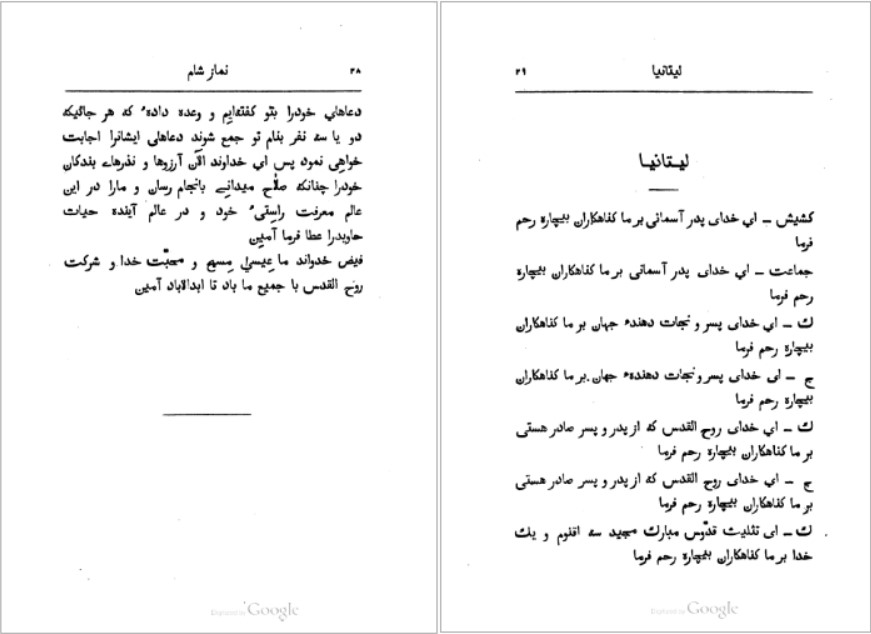 ۲۸ نماز شام
دعاهاي خودرا بتو گفته‌ایم و وعده داده‌ٔ که هر جائیکه
دو یا سه نفر بنام تو جمع شوند دعاهای ایشانرا اجابت
خواهی نمود پس اي خداوند الآن آرزوها و نذرهاے بندگان
خودرا چنانکه صلاح میدانے بانجام رسان و مارا در این
عالم معرفت راستیٔ خود و در عالم آینده حیات
جاویدرا عطا فرما آمین
فیض خدواند ما عیسیٰ مسیح و محبّت خدا و شرکت
روح القدس با جمیع ما باد تا ابدالاباد آمین
Digitized by Google
لیتانیا ۲۹
لیتانیا
کشیش ــ اي خدای پدر آسمانی بر ما گناهکاران بیچاره رحم
فرما
جماعت ــ اي خدای پدر آسمانی بر ما گناهکاران بیچاره
رحم فرما
ك ــ اي خدای پسر و نجات دهندهٔ جهان بر ما گناهکاران
بیچاره رحم فرما
ج ــ ای خدای پسر و نجات دهندهٔ جهان بر ما گناهکاران
بیچاره رحم فرما
ك ــ اي خدای روح القدس که از پدر و پسر صادر هستی
بر ما گناهکاران بیچاره رحم فرما
ج ــ اي خدای روح القدس که از پدر و پسر صادر هستی
بر ما گناهکاران بیچاره رحم فرما
ك ــ ای تثلیث قدّوس مبارك مجید سے اقنوم و یك
خدا بر ما گناهکاران بیچاره رحم فرما
Digitized by Google